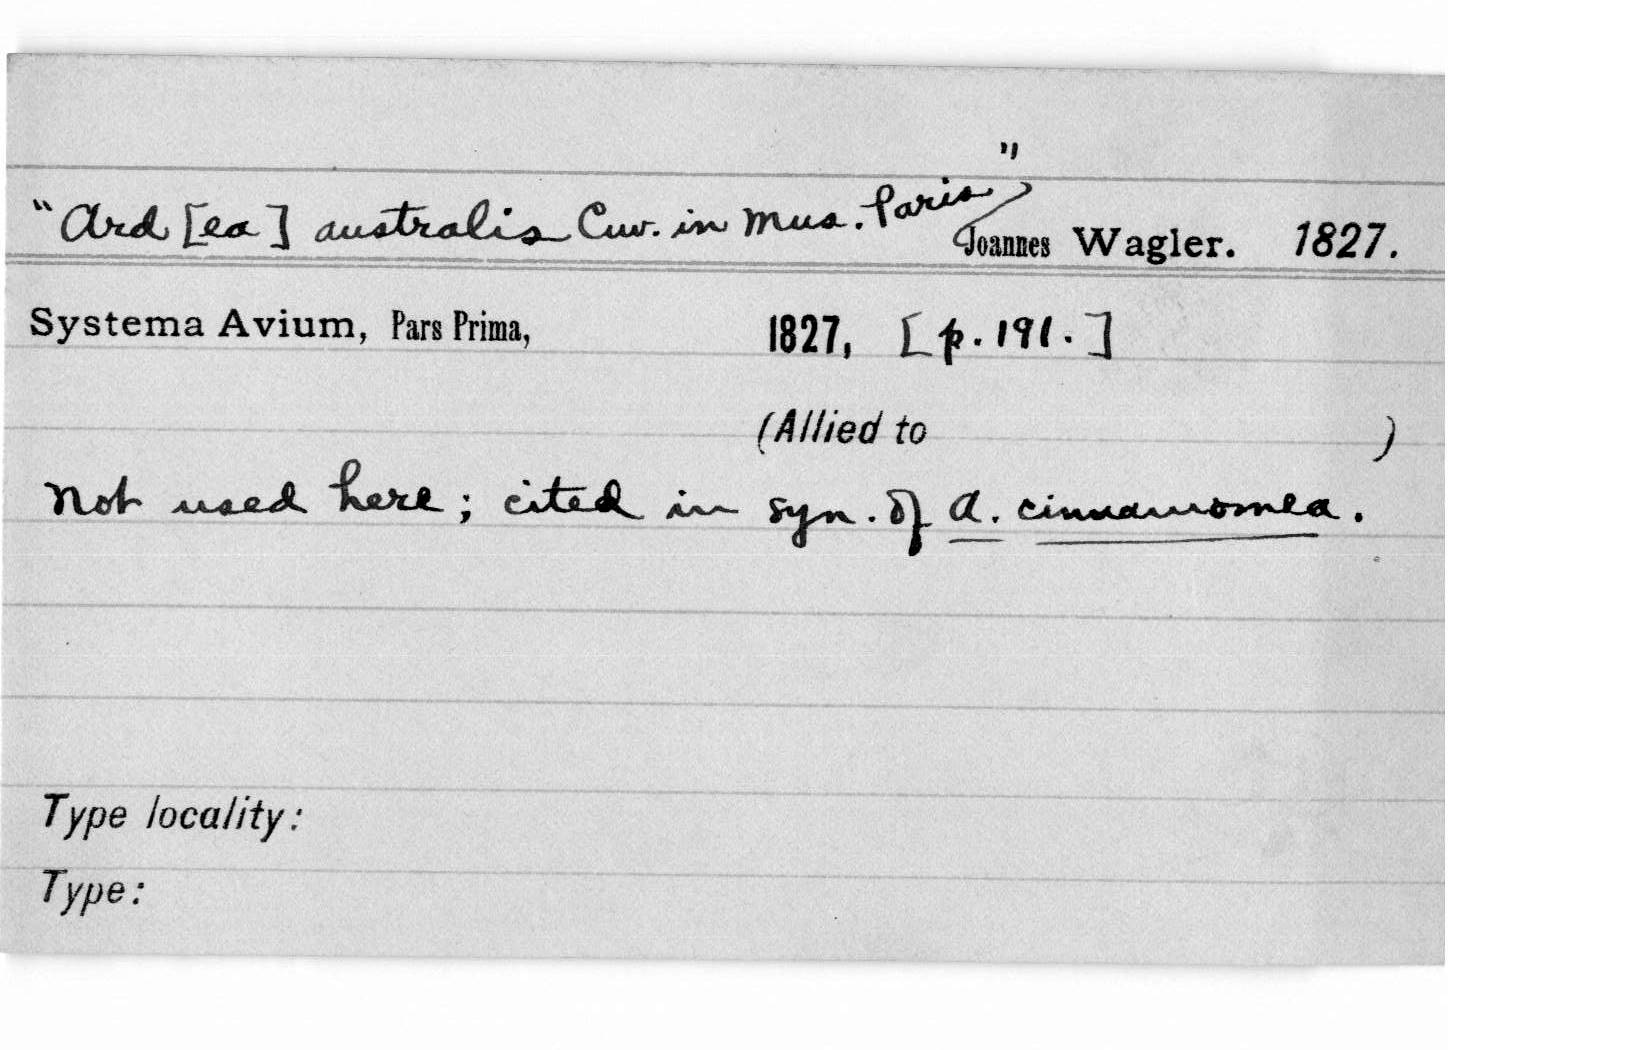 "Ard[ea] australis Cuv. in Mus. Paris" Joannes Wagler. 1827.
Systema Avium, Pars Prima, 1827, [p. 191.]
(Allied to )
Not used here; cited in syn. of A. cinnamomea.
Type locality:
Type: